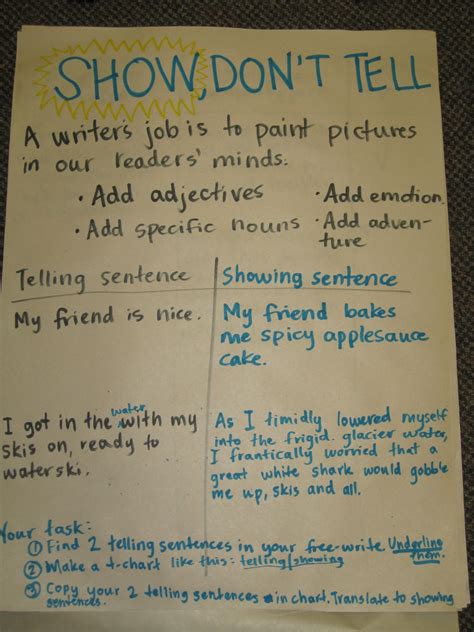 SHOW, DON'T TELL
A writer's job is to paint pictures
in our readers' minds.
• Add adjectives
• Add specific nouns
• Add emotion
• Add adven-
ture
Telling sentence
Showing sentence
My friend is nice.
My friend bakes
me spicy applesauce
cake.
I got in the water with my
skis on, ready to
waterski.
As I timidly lowered myself
into the frigid glacier water,
I frantically worried that a
great white shark would gobble
me up, skis and all.
Your task:
① Find 2 telling sentences in your free-write. Underline them.
② Make a t-chart like this: telling/showing
③ Copy your 2 telling sentences in chart. Translate to showing
sentences.